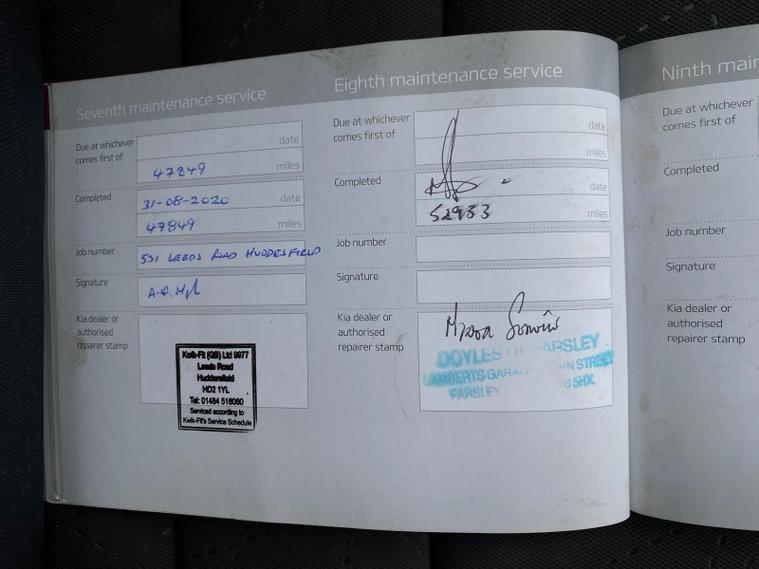 Seventh maintenance service
Due at whichever
comes first of
date
47849 miles
Completed
31-08-2020 date
47849 miles
Job number
531 LEEDS ROAD HUDDESFIELD
Signature
Kia dealer or
authorised
repairer stamp
Kwik-Fit (GB) Ltd 9977
Leeds Road
Huddersfield
HD2 1YL
Tel: 01484 516080
Serviced according to
Kwik-Fit's Service Schedule
Eighth maintenance service
Due at whichever
comes first of
date
miles
Completed
date
52933 miles
Job number
Signature
Kia dealer or
authorised
repairer stamp
DOYLES OF FARSLEY
LAMBERTS GARA
N STREET
FARSLEY
5HX
Ninth main
Due at whichever
comes first of
Completed
Job number
Signature
Kia dealer or
authorised
repairer stamp